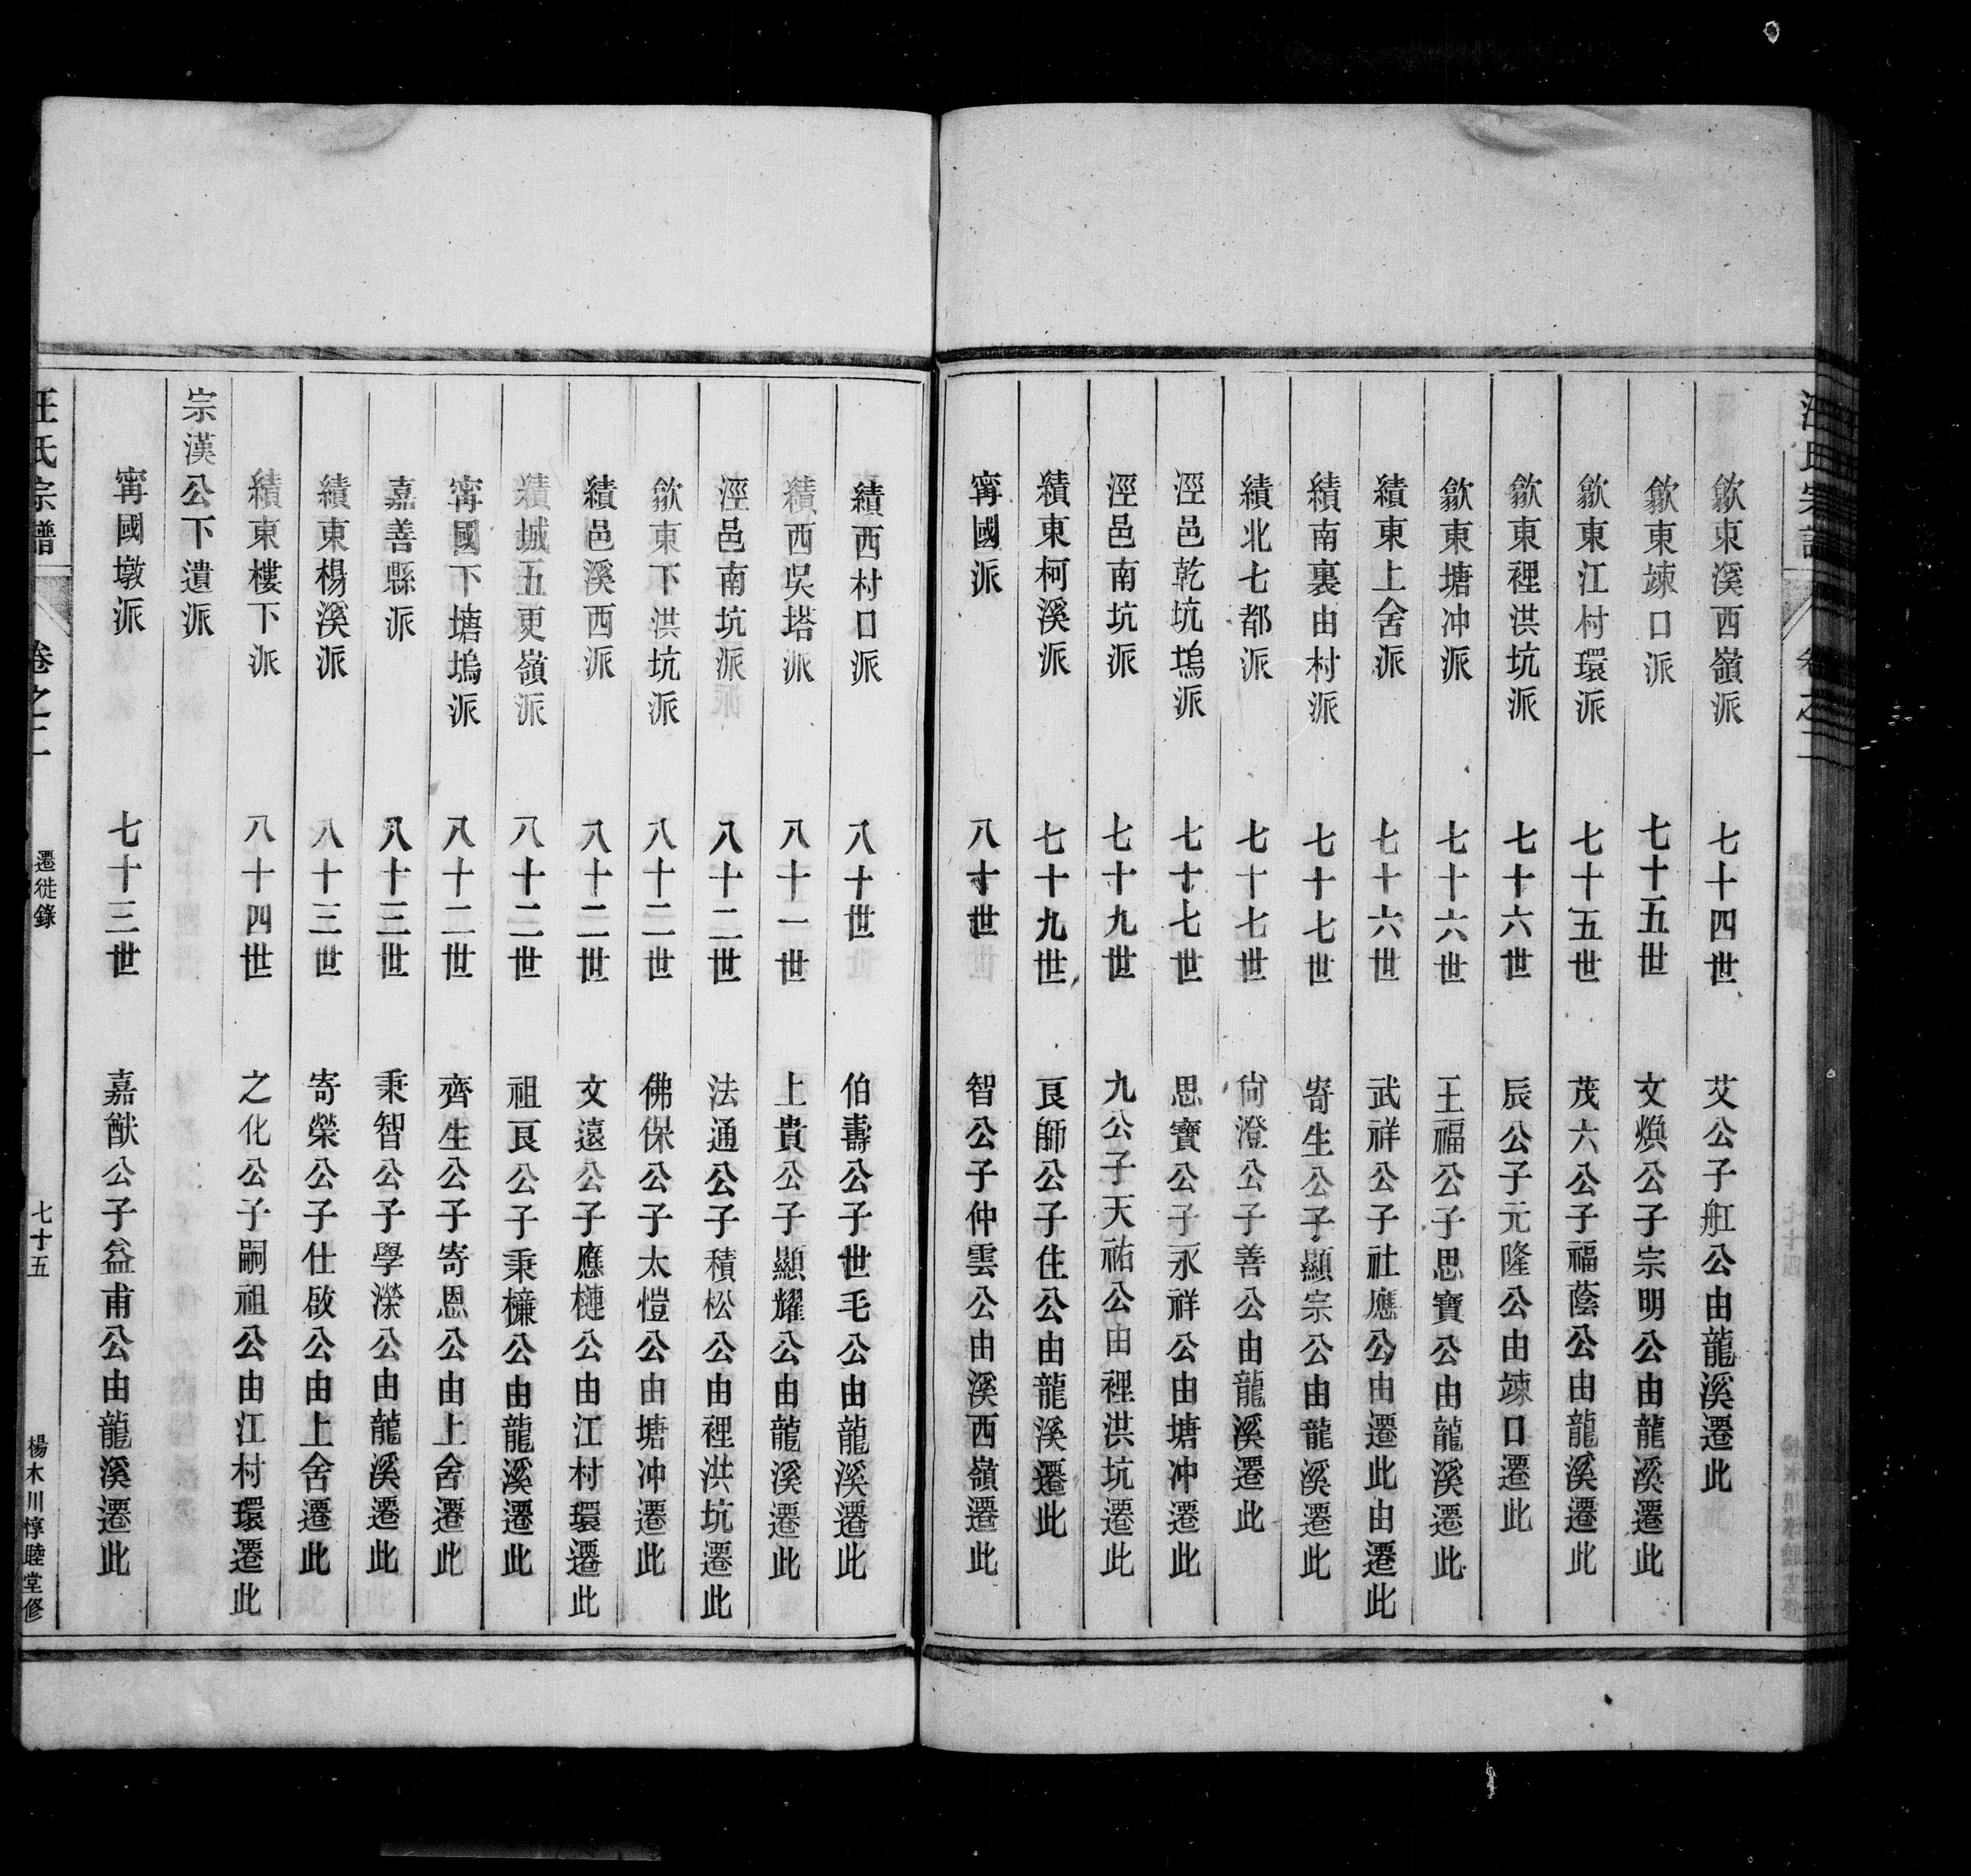 汪氏宗譜 卷之二
歙東溪西嶺派 七十四世 艾公子舡公由龍溪遷此
歙東竦口派 七十五世 文煥公子宗明公由龍溪遷此
歙東江村環派 七十五世 茂六公子福蔭公由龍溪遷此
歙東裡洪坑派 七十六世 辰公子元隆公由竦口遷此
歙東塘冲派 七十六世 王福公子思寶公由龍溪遷此
績東上舍派 七十六世 武祥公子社應公由遷此由遷此
績南裏由村派 七十七世 寄生公子顯宗公由龍溪遷此
績北七都派 七十七世 尙澄公子善公由龍溪遷此
涇邑乾坑塢派 七十七世 思寶公子永祥公由塘冲遷此
涇邑南坑派 七十九世 九公子天祐公由裡洪坑遷此
績東柯溪派 七十九世 良師公子住公由龍溪遷此
甯國派 八十世 智公子仲雲公由溪西嶺遷此
績西村口派 八十世 伯壽公子世毛公由龍溪遷此
績西吳塔派 八十一世 上貴公子顯耀公由龍溪遷此
涇邑南坑派 八十二世 法通公子積松公由裡洪坑遷此
歙東下洪坑派 八十二世 佛保公子太愷公由塘冲遷此
績邑溪西派 八十二世 文遠公子應槤公由江村環遷此
績城五更嶺派 八十二世 祖良公子秉㯺公由龍溪遷此
甯國下塘塢派 八十二世 齊生公子寄恩公由上舍遷此
嘉善縣派 八十三世 秉智公子學濚公由龍溪遷此
績東楊溪派 八十三世 寄榮公子仕啟公由上舍遷此
績東樓下派 八十四世 之化公子嗣祖公由江村環遷此
宗漢公下遺派
甯國墩派 七十三世 嘉猷公子益甫公由龍溪遷此
汪氏宗譜 卷之二 遷徙錄 七十五 楊木川惇睦堂修